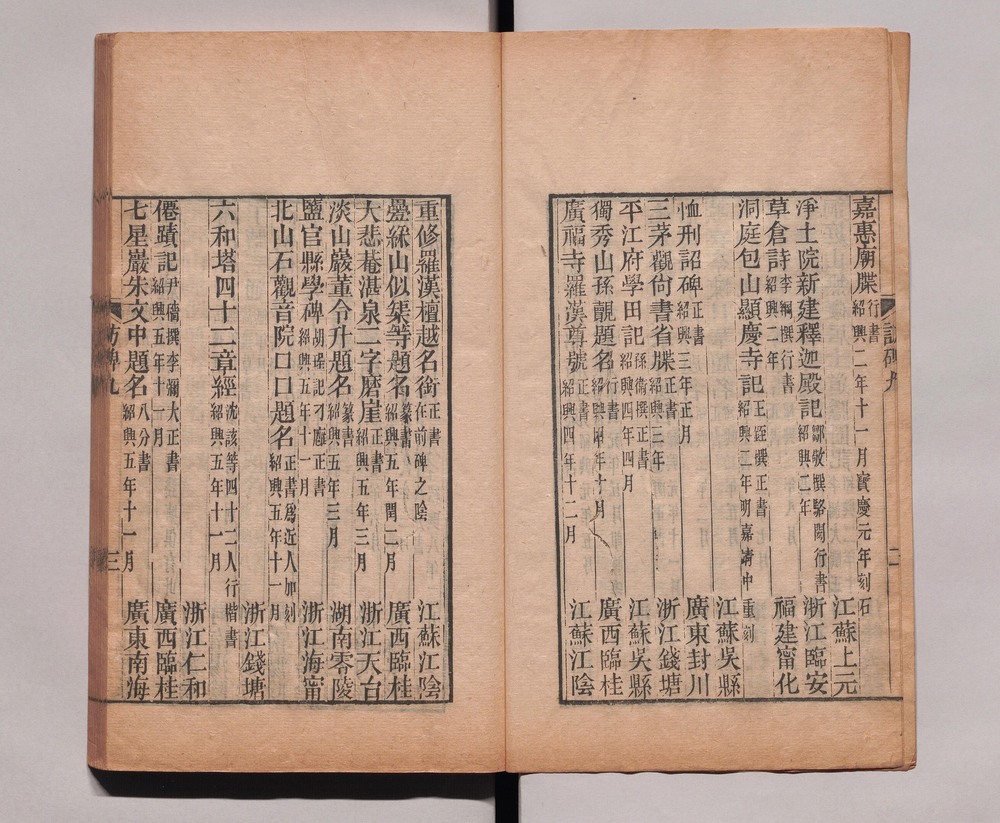 嘉惠廟牒 行書 紹興二年十一月寶慶元年刻石 江蘇上元
淨土院新建釋迦殿記 鄒敦撰駱閎行書 紹興二年 浙江臨安
草倉詩 李綱撰行書 紹興二年 福建甯化
洞庭包山顯慶寺記 王銍撰正書 紹興二年明嘉靖中重刻
江蘇吳縣
恤刑詔碑 正書 紹興三年正月 廣東封川
三茅觀尙書省牒 正書 紹興三年 浙江錢塘
平江府學田記 孫衛撰正書 紹興四年四月 江蘇吳縣
獨秀山孫覿題名 行書 紹興四年十月 廣西臨桂
廣福寺羅漢尊號 正書 紹興四年十二月 江蘇江陰
訪碑九
二
重修羅漢檀越名銜 正書 在前碑之陰 江蘇江陰
疊綵山似榘等題名 篆書 紹興五年閏二月 廣西臨桂
大悲菴湛泉二字磨崖 正書 紹興五年三月 浙江天台
淡山巖董令升題名 篆書 紹興五年三月 湖南零陵
鹽官縣學碑 胡珵記刁廱正書 紹興五年十一月 浙江海甯
北山石觀音院口口題名 正書爲近人加刻 紹興五年十一月
浙江錢塘
六和塔四十二章經 沈該等四十二人行楷書 紹興五年十一月
浙江仁和
僊蹟記 尹穡撰李彌大正書 紹興五年十一月 廣西臨桂
七星巖朱文中題名 八分書 紹興五年十一月 廣東南海
訪碑九
三